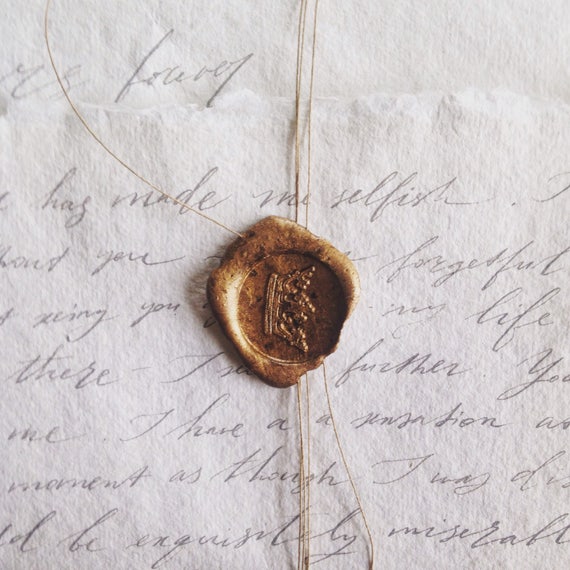 forever
has made me selfish. I
without you forgetful
seeing you my life
there - I see further. You
me. I have a sensation as
moment as though I was dis
be exquisitely miserabl